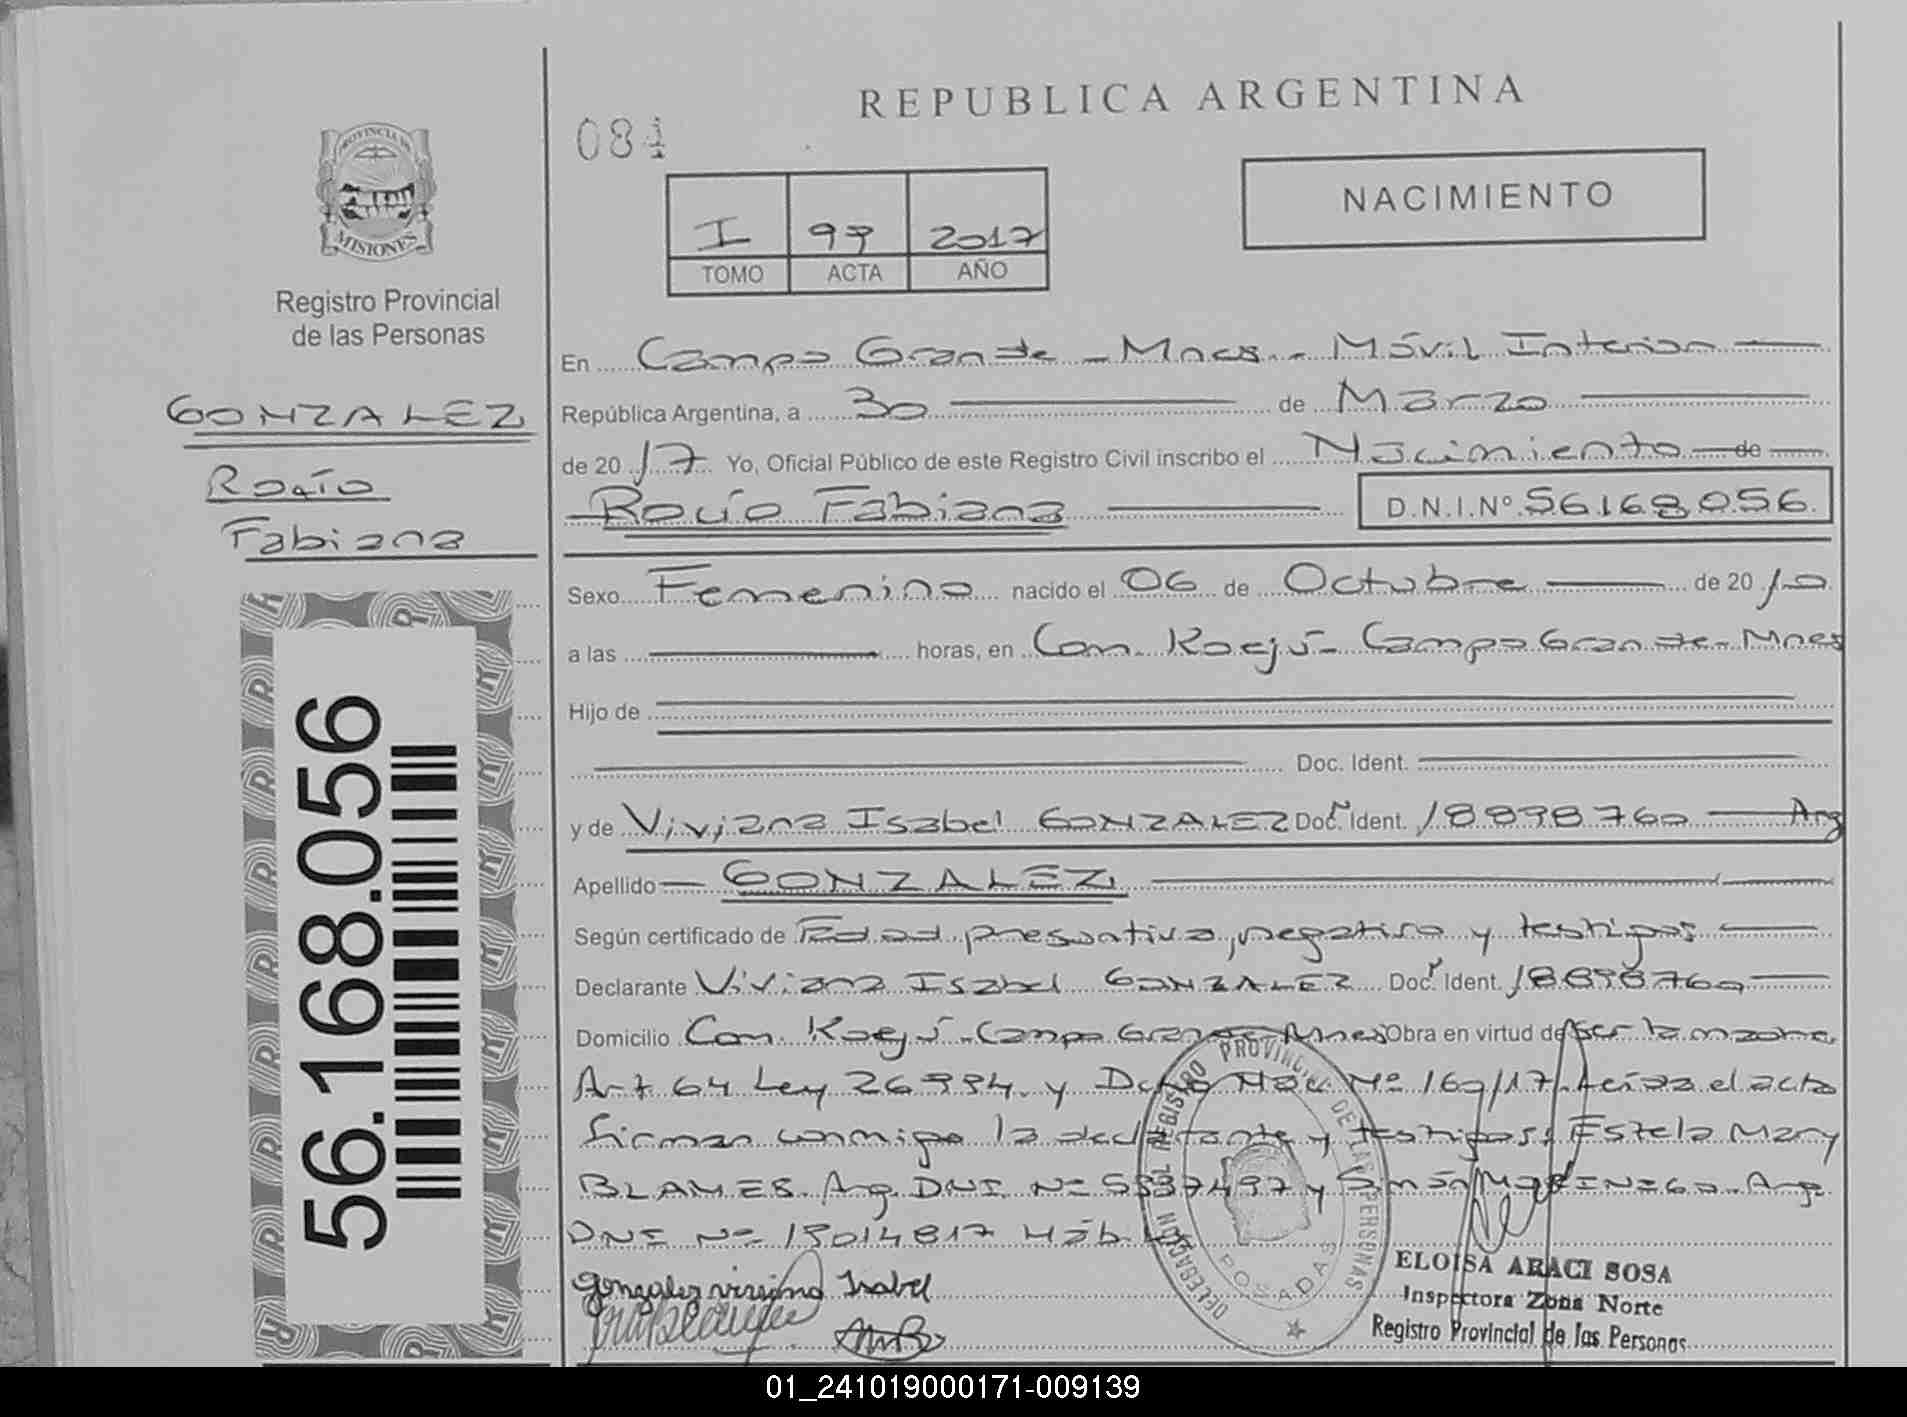 REPUBLICA ARGENTINA
084
PROVINCIA DE
MISIONES
Registro Provincial
de las Personas
GONZALEZ
Rocío
Fabiana
56.168.056
I 97 2017
TOMO ACTA AÑO
NACIMIENTO
En Campo Grande - Mnes. - Móvil Interior
República Argentina, a 30 de Marzo
de 2017 Yo, Oficial Público de este Registro Civil inscribo el Nacimiento de
Rocío Fabiana D.N.I.Nº 56168056
Sexo Femenino nacido el 06 de Octubre de 2010
a las horas, en Com. Kaejú - Campo Grande - Mnes
Hijo de
Doc. Ident.
y de Viviana Isabel GONZALEZ Doc. Ident. 18898760 Arg
Apellido GONZALEZ
Según certificado de Edad presuntiva, negativo y testigos
Declarante Viviana Isabel GONZALEZ Doc. Ident. 18898760
Domicilio Com. Kaejú - Campo Grande Mnes Obra en virtud de ser la madre.
Art. 64 Ley 26994. y Dcto Nac. Nº 160/17. Leída el acta
firman conmigo la declarante y testigos: Estela Mary
BLANES Arg. DNI Nº y Simón Arg.
DNI Nº Háb.
Gonzalez viviana Isabel
DELEGACIÓN DEL REGISTRO PROVINCIAL DE LAS PERSONAS
POSADAS
ELOISA ARACI SOSA
Inspectora Zona Norte
Registro Provincial de las Personas
01_241019000171-009139